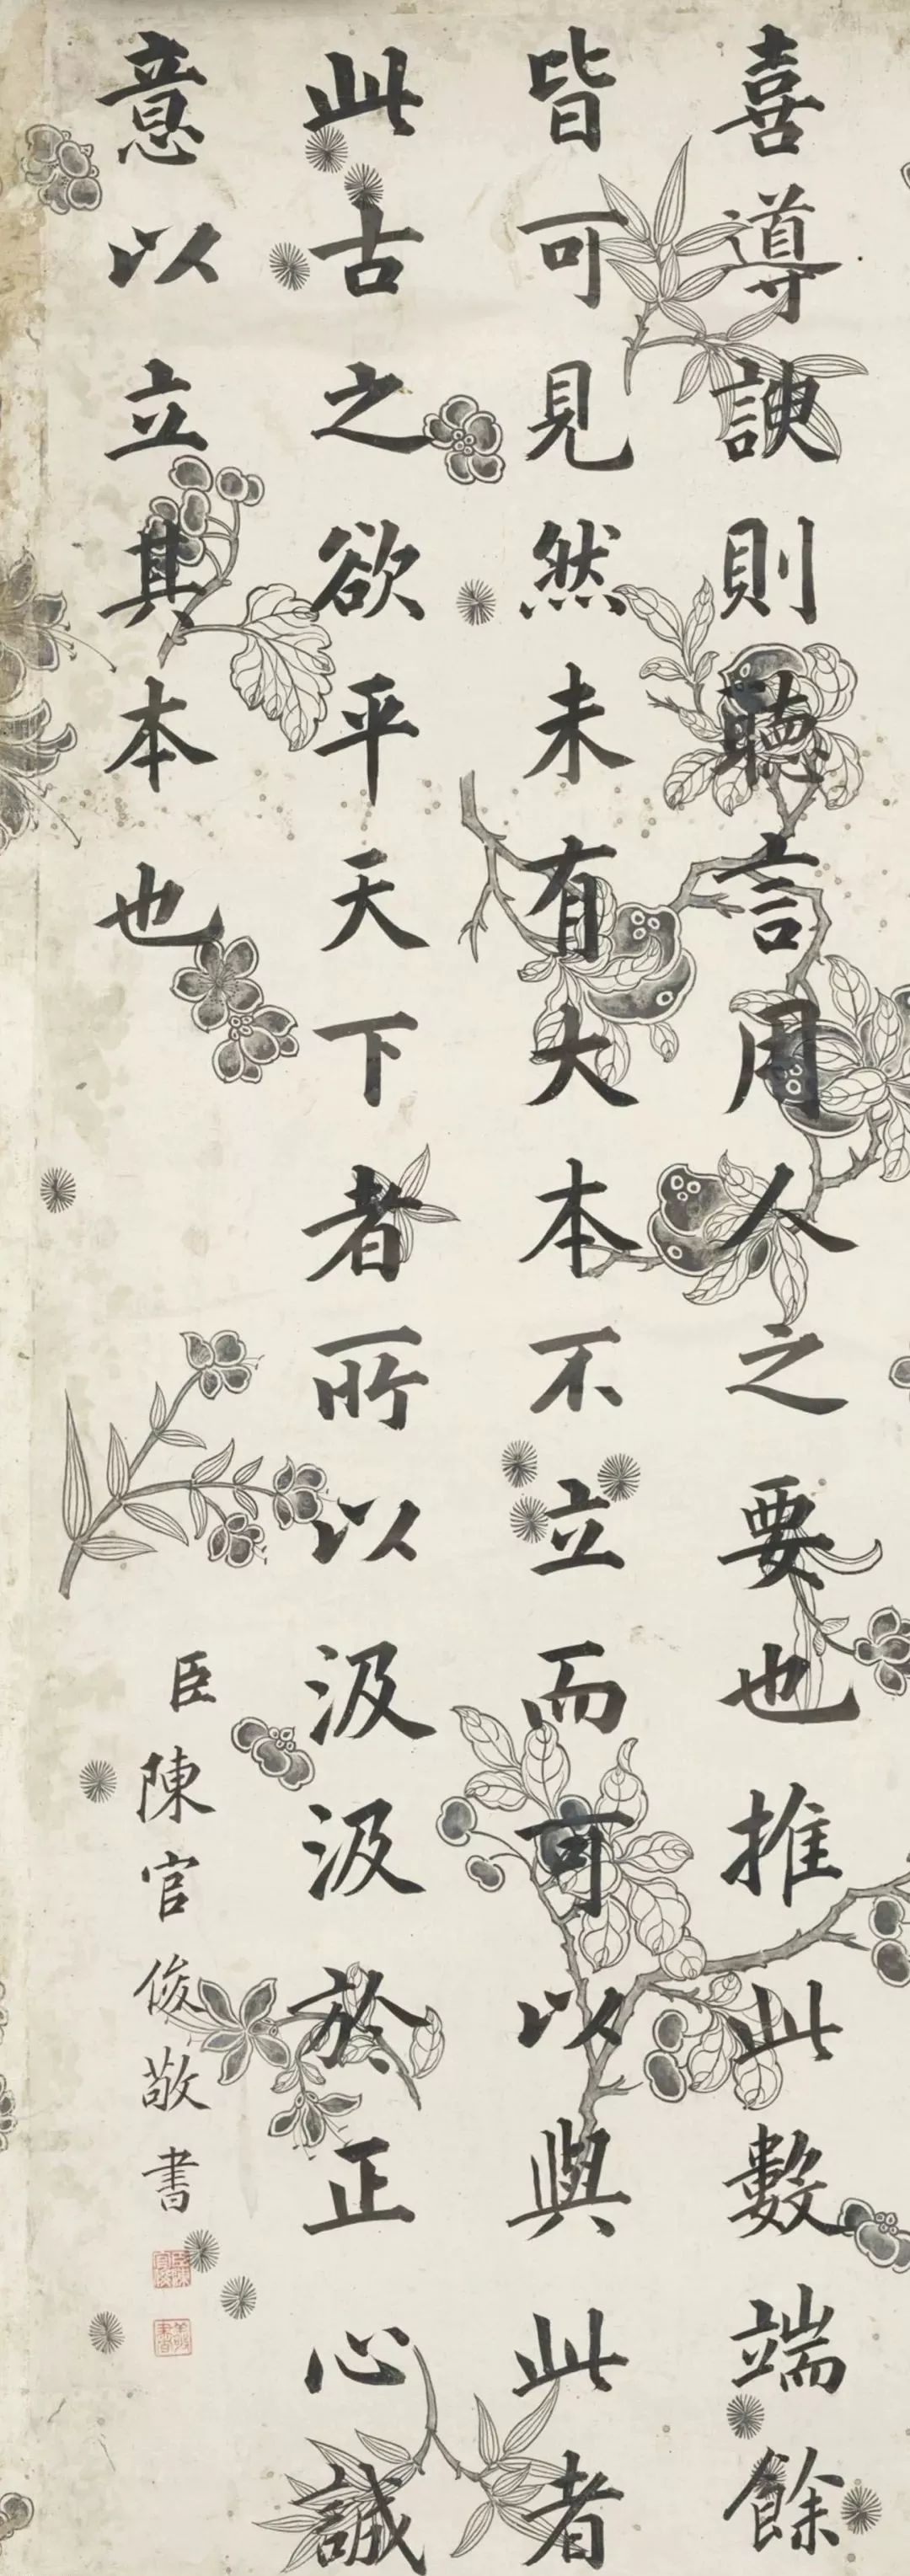 喜導諛則聽言用人之要也推此數端餘
皆可見然未有大本不立而可以與此者
此古之欲平天下者所以汲汲於正心誠
意以立其本也
臣陳官俊敬書